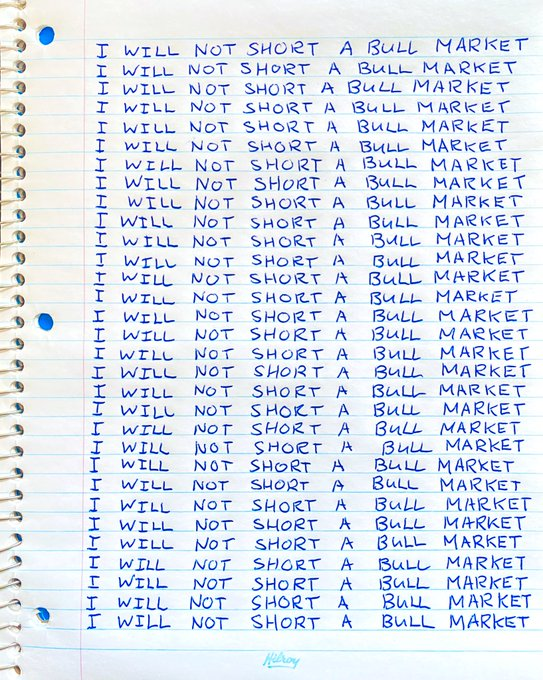 I WILL NOT SHORT A BULL MARKET
I WILL NOT SHORT A BULL MARKET
I WILL NOT SHORT A BULL MARKET
I WILL NOT SHORT A BULL MARKET
I WILL NOT SHORT A BULL MARKET
I WILL NOT SHORT A BULL MARKET
I WILL NOT SHORT A BULL MARKET
I WILL NOT SHORT A BULL MARKET
I WILL NOT SHORT A BULL MARKET
I WILL NOT SHORT A BULL MARKET
I WILL NOT SHORT A BULL MARKET
I WILL NOT SHORT A BULL MARKET
I WILL NOT SHORT A BULL MARKET
I WILL NOT SHORT A BULL MARKET
I WILL NOT SHORT A BULL MARKET
I WILL NOT SHORT A BULL MARKET
I WILL NOT SHORT A BULL MARKET
I WILL NOT SHORT A BULL MARKET
I WILL NOT SHORT A BULL MARKET
I WILL NOT SHORT A BULL MARKET
I WILL NOT SHORT A BULL MARKET
I WILL NOT SHORT A BULL MARKET
I WILL NOT SHORT A BULL MARKET
I WILL NOT SHORT A BULL MARKET
I WILL NOT SHORT A BULL MARKET
I WILL NOT SHORT A BULL MARKET
I WILL NOT SHORT A BULL MARKET
I WILL NOT SHORT A BULL MARKET
I WILL NOT SHORT A BULL MARKET
I WILL NOT SHORT A BULL MARKET
I WILL NOT SHORT A BULL MARKET
Hilroy